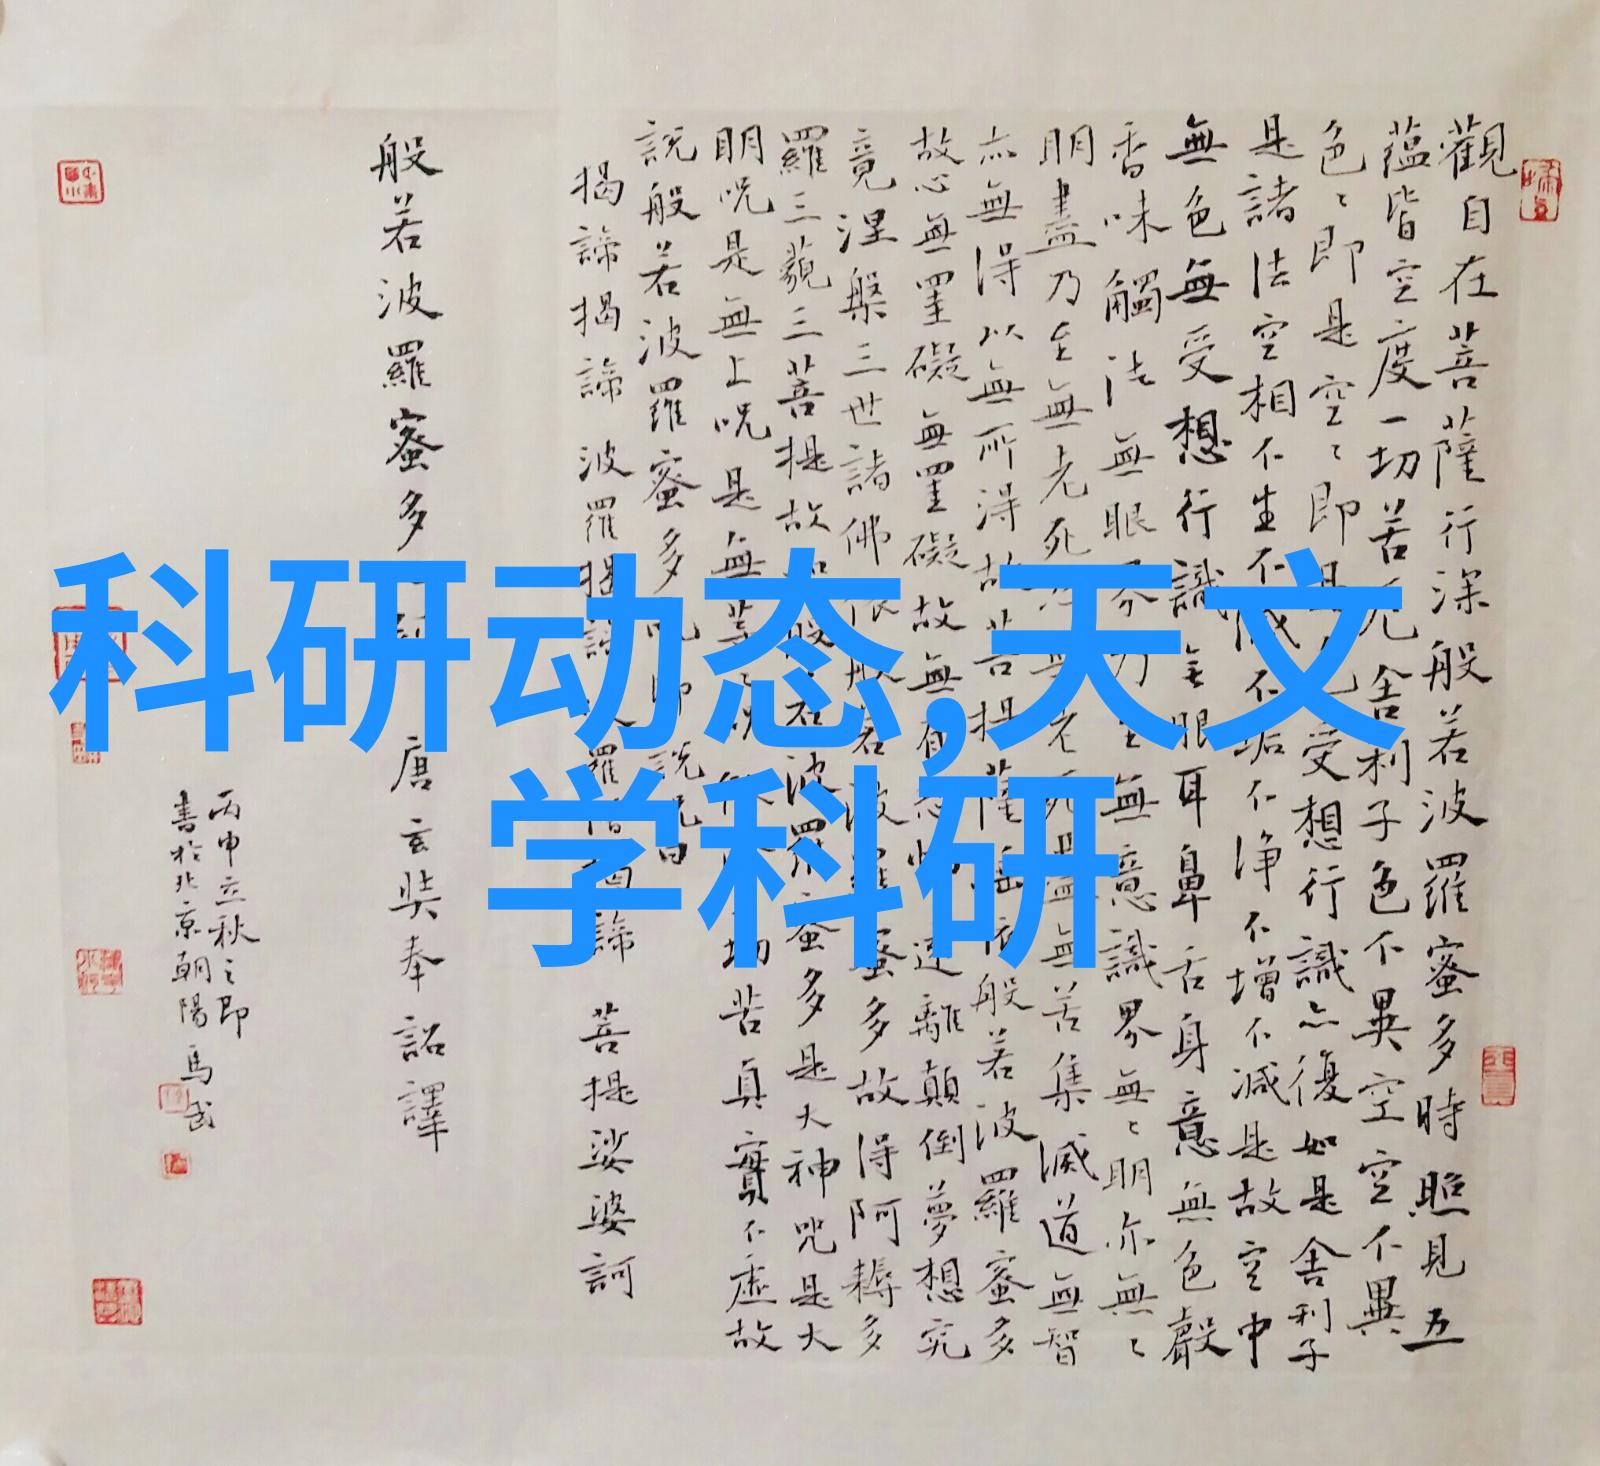 科研动态,天文
学科研
觀自在菩薩行深般若波羅蜜多時照見五
蘊皆空度一切苦厄舍利子色不異空空不異
色〻即是空〻即是色受想行識亦復如是舍利子
是諸法空相不生不滅不垢不淨不增不減是故空中
無色無受想行識無眼耳鼻舌身意無色聲
香味觸法無眼界乃至無意識界無〻明亦無〻
明盡乃至無老死亦無老死盡無苦集滅道無智
亦無得以無所得故菩提薩埵依般若波羅蜜多
故心無罣礙無罣礙故無有恐怖遠離顛倒夢想究
竟涅槃三世諸佛依般若波羅蜜多故得阿耨多
羅三藐三菩提故知般若波羅蜜多是大神咒是大
明咒是無上咒是無等〻咒能除一切苦真實不虛故
說般若波羅蜜多咒即說咒曰
揭諦揭諦波羅揭諦波羅僧揭諦菩提娑婆訶
般若波羅蜜多心經唐玄奘奉詔譯
丙申立秋之即
書於北京朝陽馬武